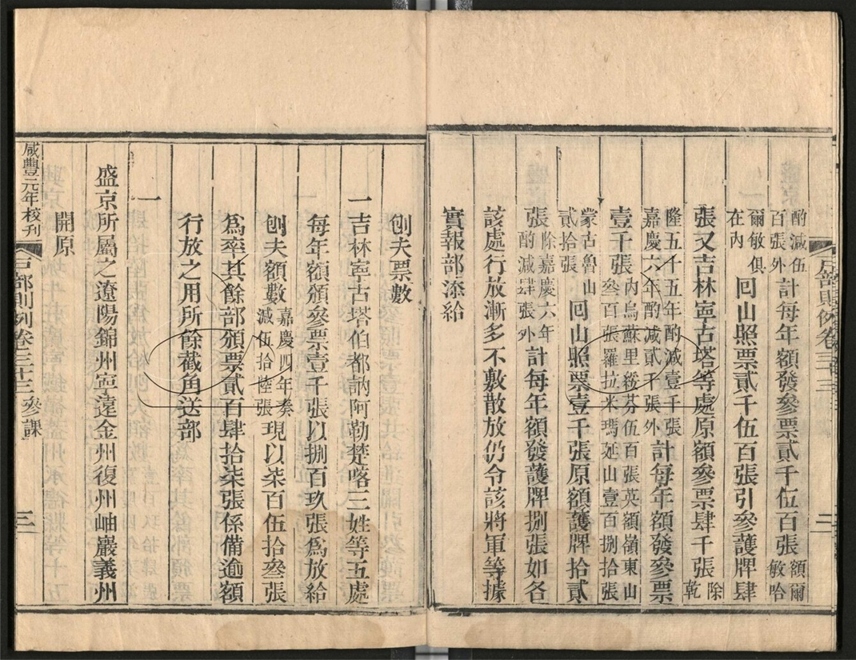 酌減伍
百張外
計每年額發參票貳千伍百張
額爾
敏哈
爾敏俱
在内
回山照票貳千伍百張引參護牌肆
張又吉林寧古塔等處原額參票肆千張
除
乾
隆五千五年酌減壹千張
嘉慶六年酌減貳千張外
計每年額發參票
壹千張
内烏蘇里綏芬伍百張英額嶺東山
叄百張羅拉米瑪延山壹百捌拾張
蒙古魯山
貳拾張
回山照票壹千張原額護牌拾貳
張
除嘉慶六年
酌減肆張外
計每年額發護牌捌張如各
該處行放漸多不敷散放仍令該將軍等據
實報部添給
刨夫票數
一吉林寧古塔伯都訥阿勒楚喀三姓等五處
每年額頒參票壹千張以捌百玖張爲放給
刨夫額數
嘉慶四年奏
減伍拾陸張
現以柒百伍拾叄張
爲率其餘部頒票貳百肆拾柒張係備逾額
行放之用所餘截角送部
一
盛京所屬之遼陽錦州寧遠金州復州岫巖義州
開原
咸豐元年校刊
戶部則例卷三十三
參課
三